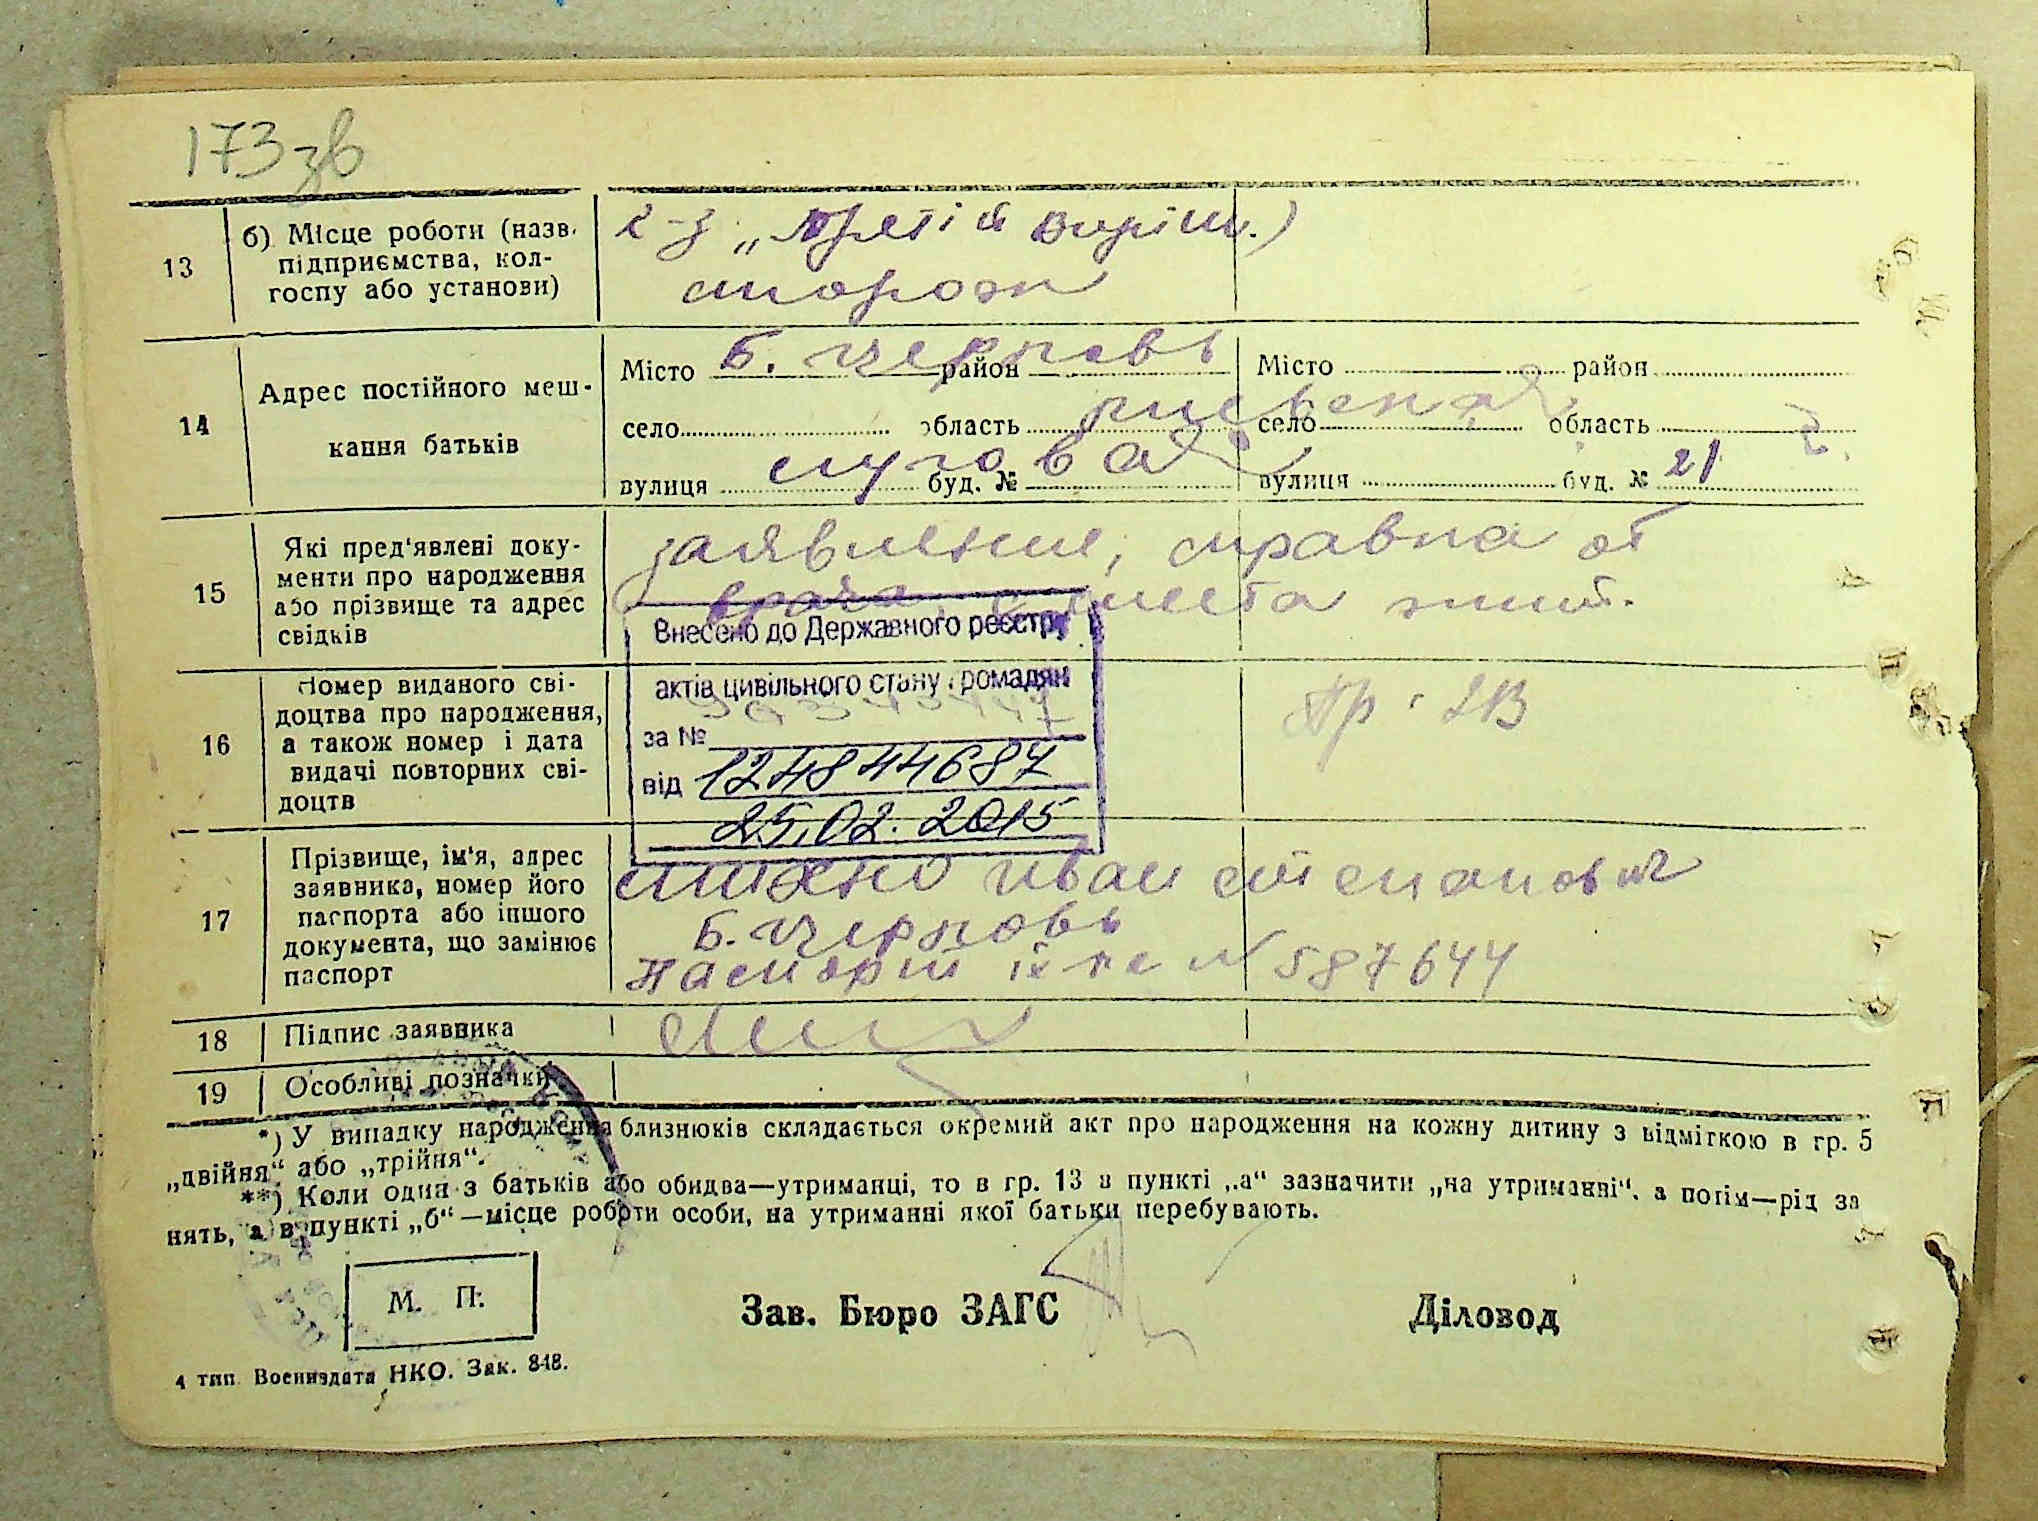 173зв
13
б) Місце роботи (назв. підприємства, колгоспу або установи)
к-з „Третій Виріш.)
сторож
14
Адрес постійного мешкання батьків
Місто Б. Церковь район
Місто район
село область киевская
село область
вулиця луговая буд. №
вулиця буд. № 21
15
Які пред'явлені документи про народження або прізвище та адрес свідків
заявление, справка от
врача, с места жит.
16
Номер виданого свідоцтва про народження, а також номер і дата видачі повторних свідоцтв
Внесено до Державного реєстру
актів цивільного стану громадян
за №
від 1248 44687
25.02.2015
17
Прізвище, ім'я, адрес заявника, номер його паспорта або іншого документа, що замінює паспорт
Иван Степанович
Б. Церковь
Паспорт № 587644
18
Підпис заявника
19
Особливі позначки
*) У випадку народження близнюків складається окремий акт про народження на кожну дитину з відміткою в гр. 5
„двійня“ або „трійня“.
**) Коли один з батьків або обидва—утриманці, то в гр. 13 в пункті „а“ зазначити „на утриманні“, а потім—рід за
нять, а в пункті „б“—місце роботи особи, на утриманні якої батьки перебувають.
М. П.
Зав. Бюро ЗАГС
Діловод
4 тип. Воениздата НКО. Зак. 848.